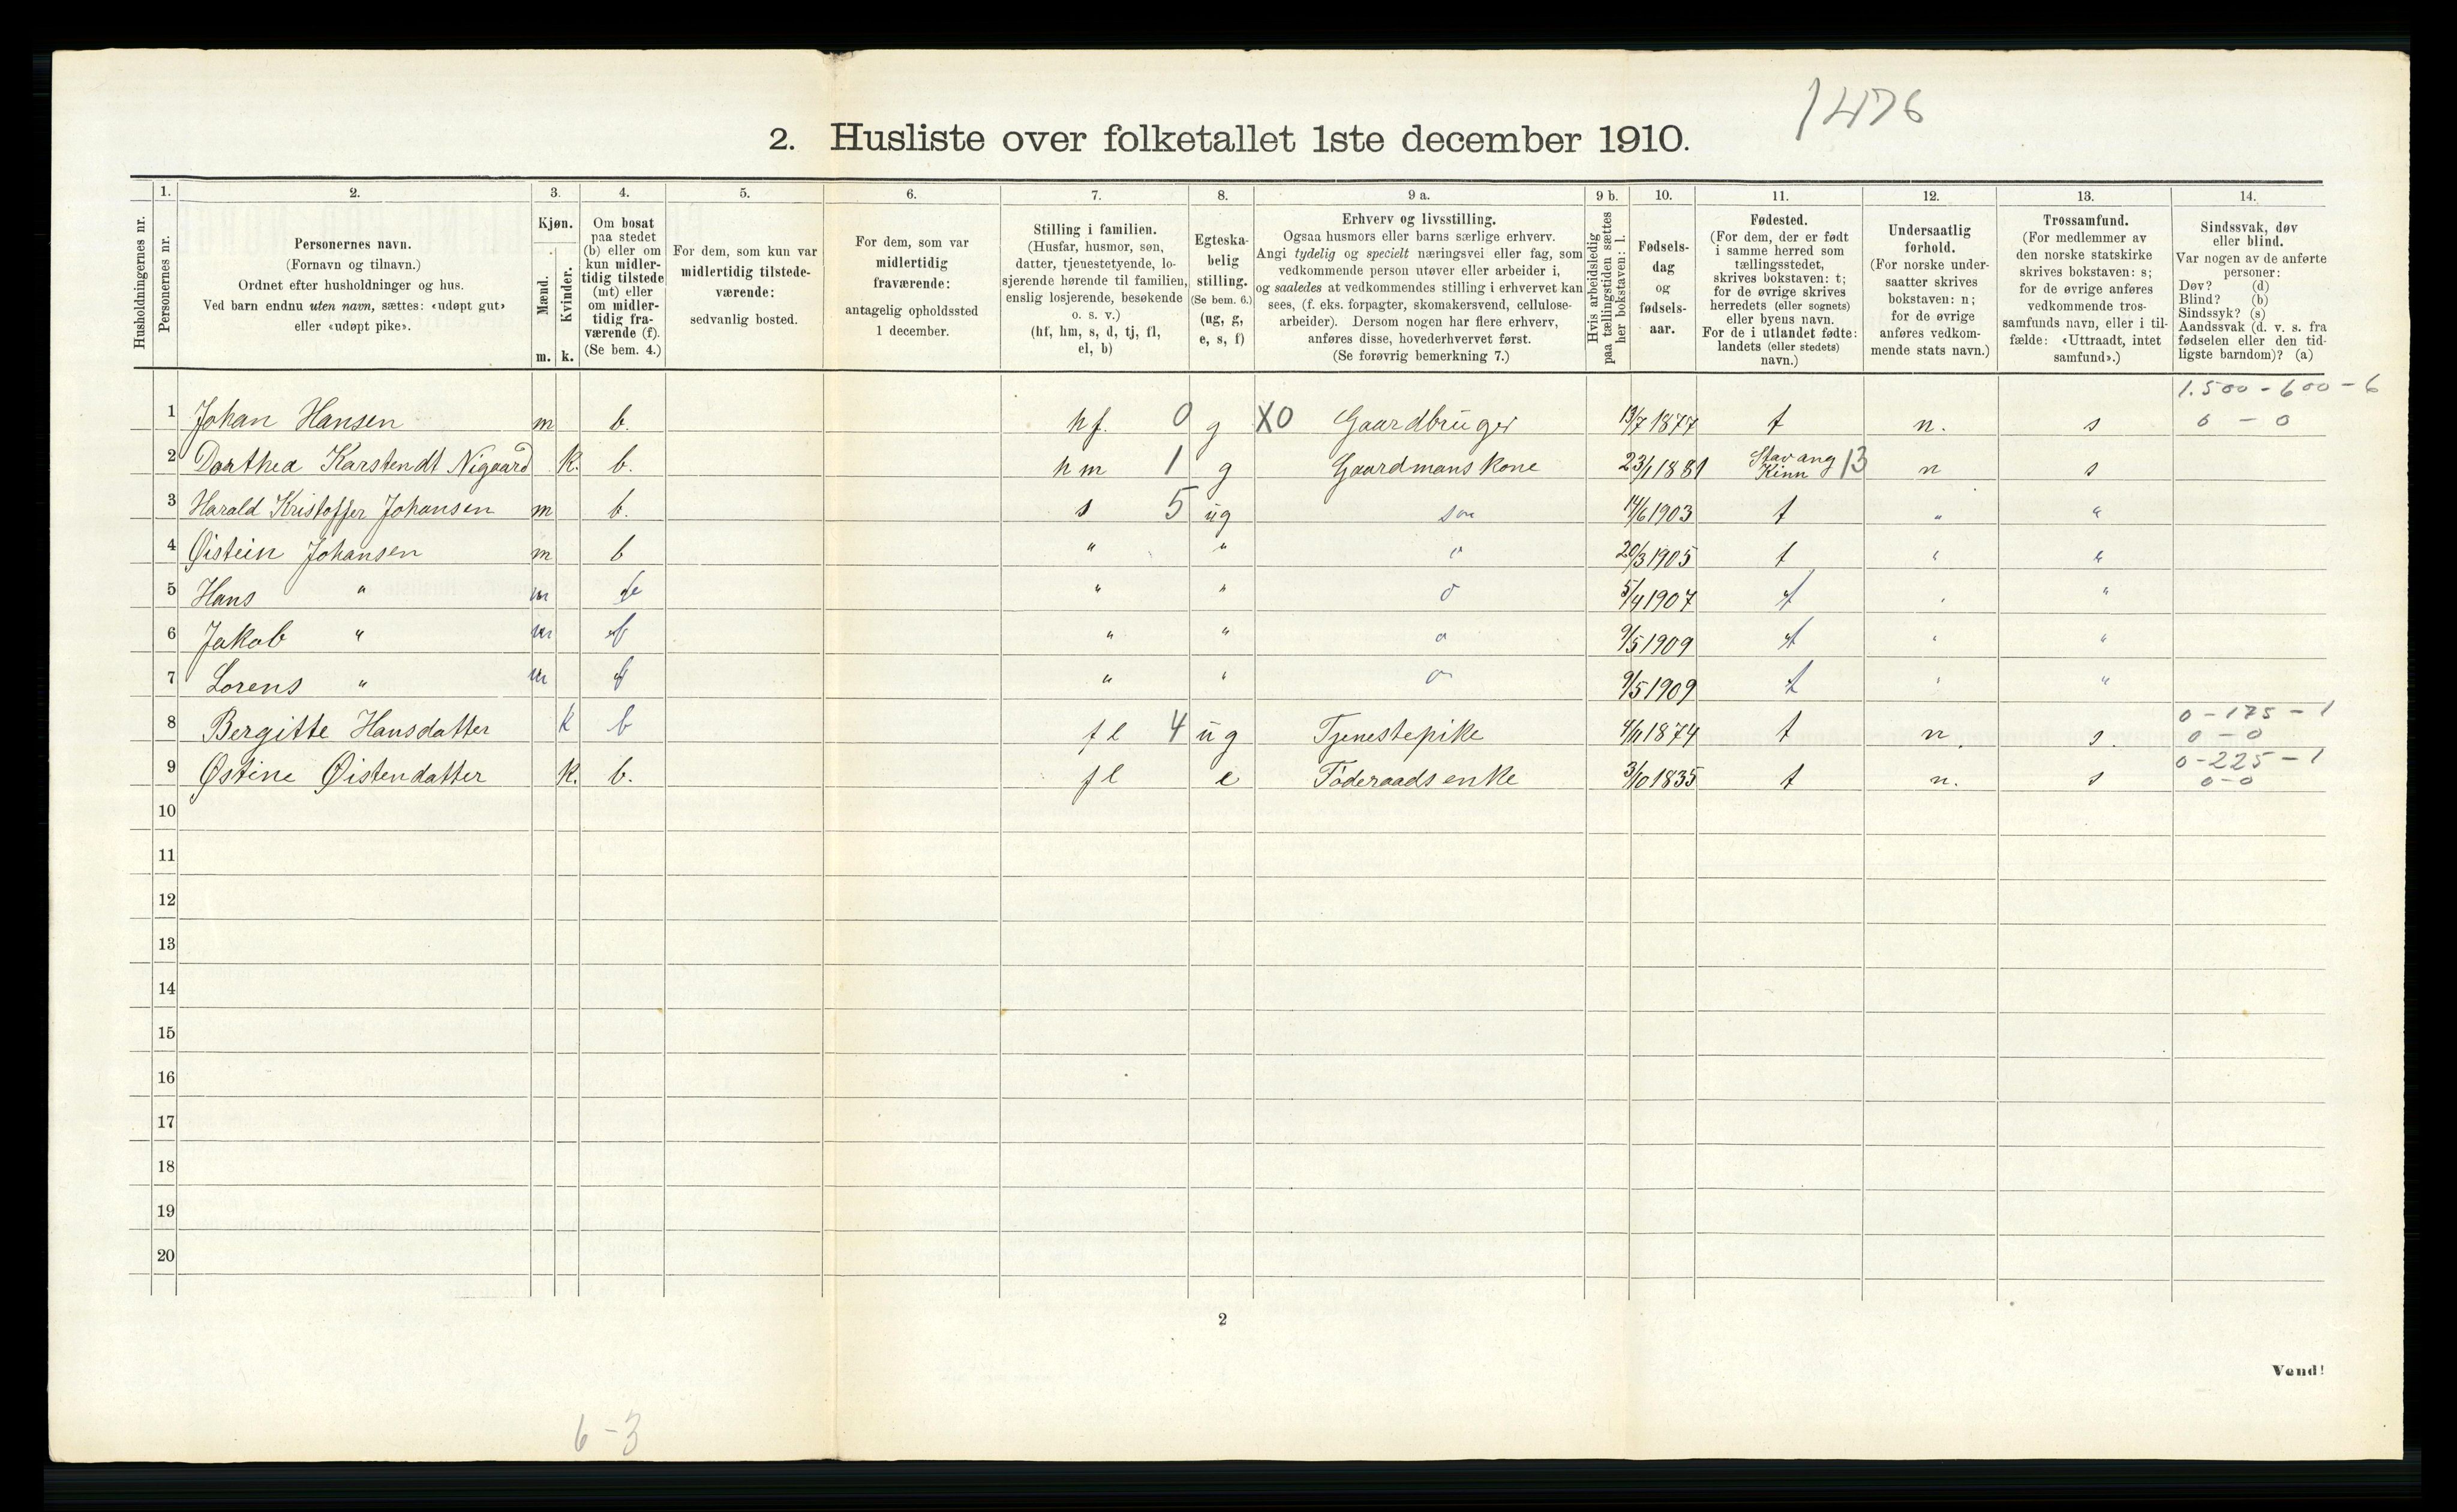 1476
2. Husliste over folketallet 1ste december 1910.
Husholdningernes nr.
1.
Personernes nr.
2.
Personernes navn.
(Fornavn og tilnavn.)
Ordnet efter husholdninger og hus.
Ved barn endnu uten navn, sættes: «udøpt gut»
eller «udøpt pike».
3.
Kjøn.
Mænd.
Kvinder.
m. k.
4.
Om bosat
paa stedet
(b) eller om
kun midler-
tidig tilstede
(mt) eller
om midler-
tidig fra-
værende (f).
(Se bem. 4.)
5.
For dem, som kun var
midlertidig tilstede-
værende:
sedvanlig bosted.
6.
For dem, som var
midlertidig
fraværende:
antagelig opholdssted
1 december.
7.
Stilling i familien.
(Husfar, husmor, søn,
datter, tjenestetyende, lo-
sjerende hørende til familien,
enslig losjerende, besøkende
o. s. v.)
(hf, hm, s, d, tj, fl,
el, b)
8.
Egteska-
belig
stilling.
(Se bem. 6.)
(ug, g,
e, s, f)
9 a.
Erhverv og livsstilling.
Ogsaa husmors eller barns særlige erhverv.
Angi tydelig og specielt næringsvei eller fag, som
vedkommende person utøver eller arbeider i,
og saaledes at vedkommendes stilling i erhvervet kan
sees, (f. eks. forpagter, skomakersvend, cellulose-
arbeider). Dersom nogen har flere erhverv,
anføres disse, hovederhvervet først.
(Se forøvrig bemerkning 7.)
9 b.
Hvis arbeidsledig
paa tællingstiden sættes
her bokstaven: l.
10.
Fødsels-
dag
og
fødsels-
aar.
11.
Fødested.
(For dem, der er født
i samme herred som
tællingsstedet,
skrives bokstaven: t;
for de øvrige skrives
herredets (eller sognets)
eller byens navn.
For de i utlandet fødte:
landets (eller stedets)
navn.)
12.
Undersaatlig
forhold.
(For norske under-
saatter skrives
bokstaven: n;
for de øvrige
anføres vedkom-
mende stats navn.)
13.
Trossamfund.
(For medlemmer av
den norske statskirke
skrives bokstaven: s;
for de øvrige anføres
vedkommende tros-
samfunds navn, eller i til-
fælde: «Uttraadt, intet
samfund».)
14.
Sindssvak, døv
eller blind.
Var nogen av de anførte
personer:
Døv? (d)
Blind? (b)
Sindssyk? (s)
Aandssvak (d. v. s. fra
fødselen eller den tid-
ligste barndom)? (a)
1.500 - 600 - 6
1 Johan Hansen m b. hf. 0 g X0 Gaardbruger 13/7 1877 t n. s 0 - 0
2 Dorthea Karstendt Nigaard k. b. hm 1 g Gaardmanskone 23/1 1881 Stavang Kinn 13 n s
3 Harald Kristoffer Johansen m b. s 5 ug søn 14/6 1903 t " "
4 Øistein Johansen m b " " o 20/3 1905 t " "
5 Hans " m " " o 5/4 1907 t " "
6 Jakob " m b " " o 9/5 1909 t " "
7 Lorens " m " " o 9/5 1909 t " "
0 - 175 - 1
8 Bergitte Hansdatter k b fl 4 ug Tjenestepike 4/11 1874 t n. s. 0 - 0
0 - 225 - 1
9 Østine Øistendatter k. b. fl e Föderaadsenke 3/10 1835 t n. s 0 - 0
10
11
12
13
14
15
16
17
18
19
20
2
Vend!
6 - 3